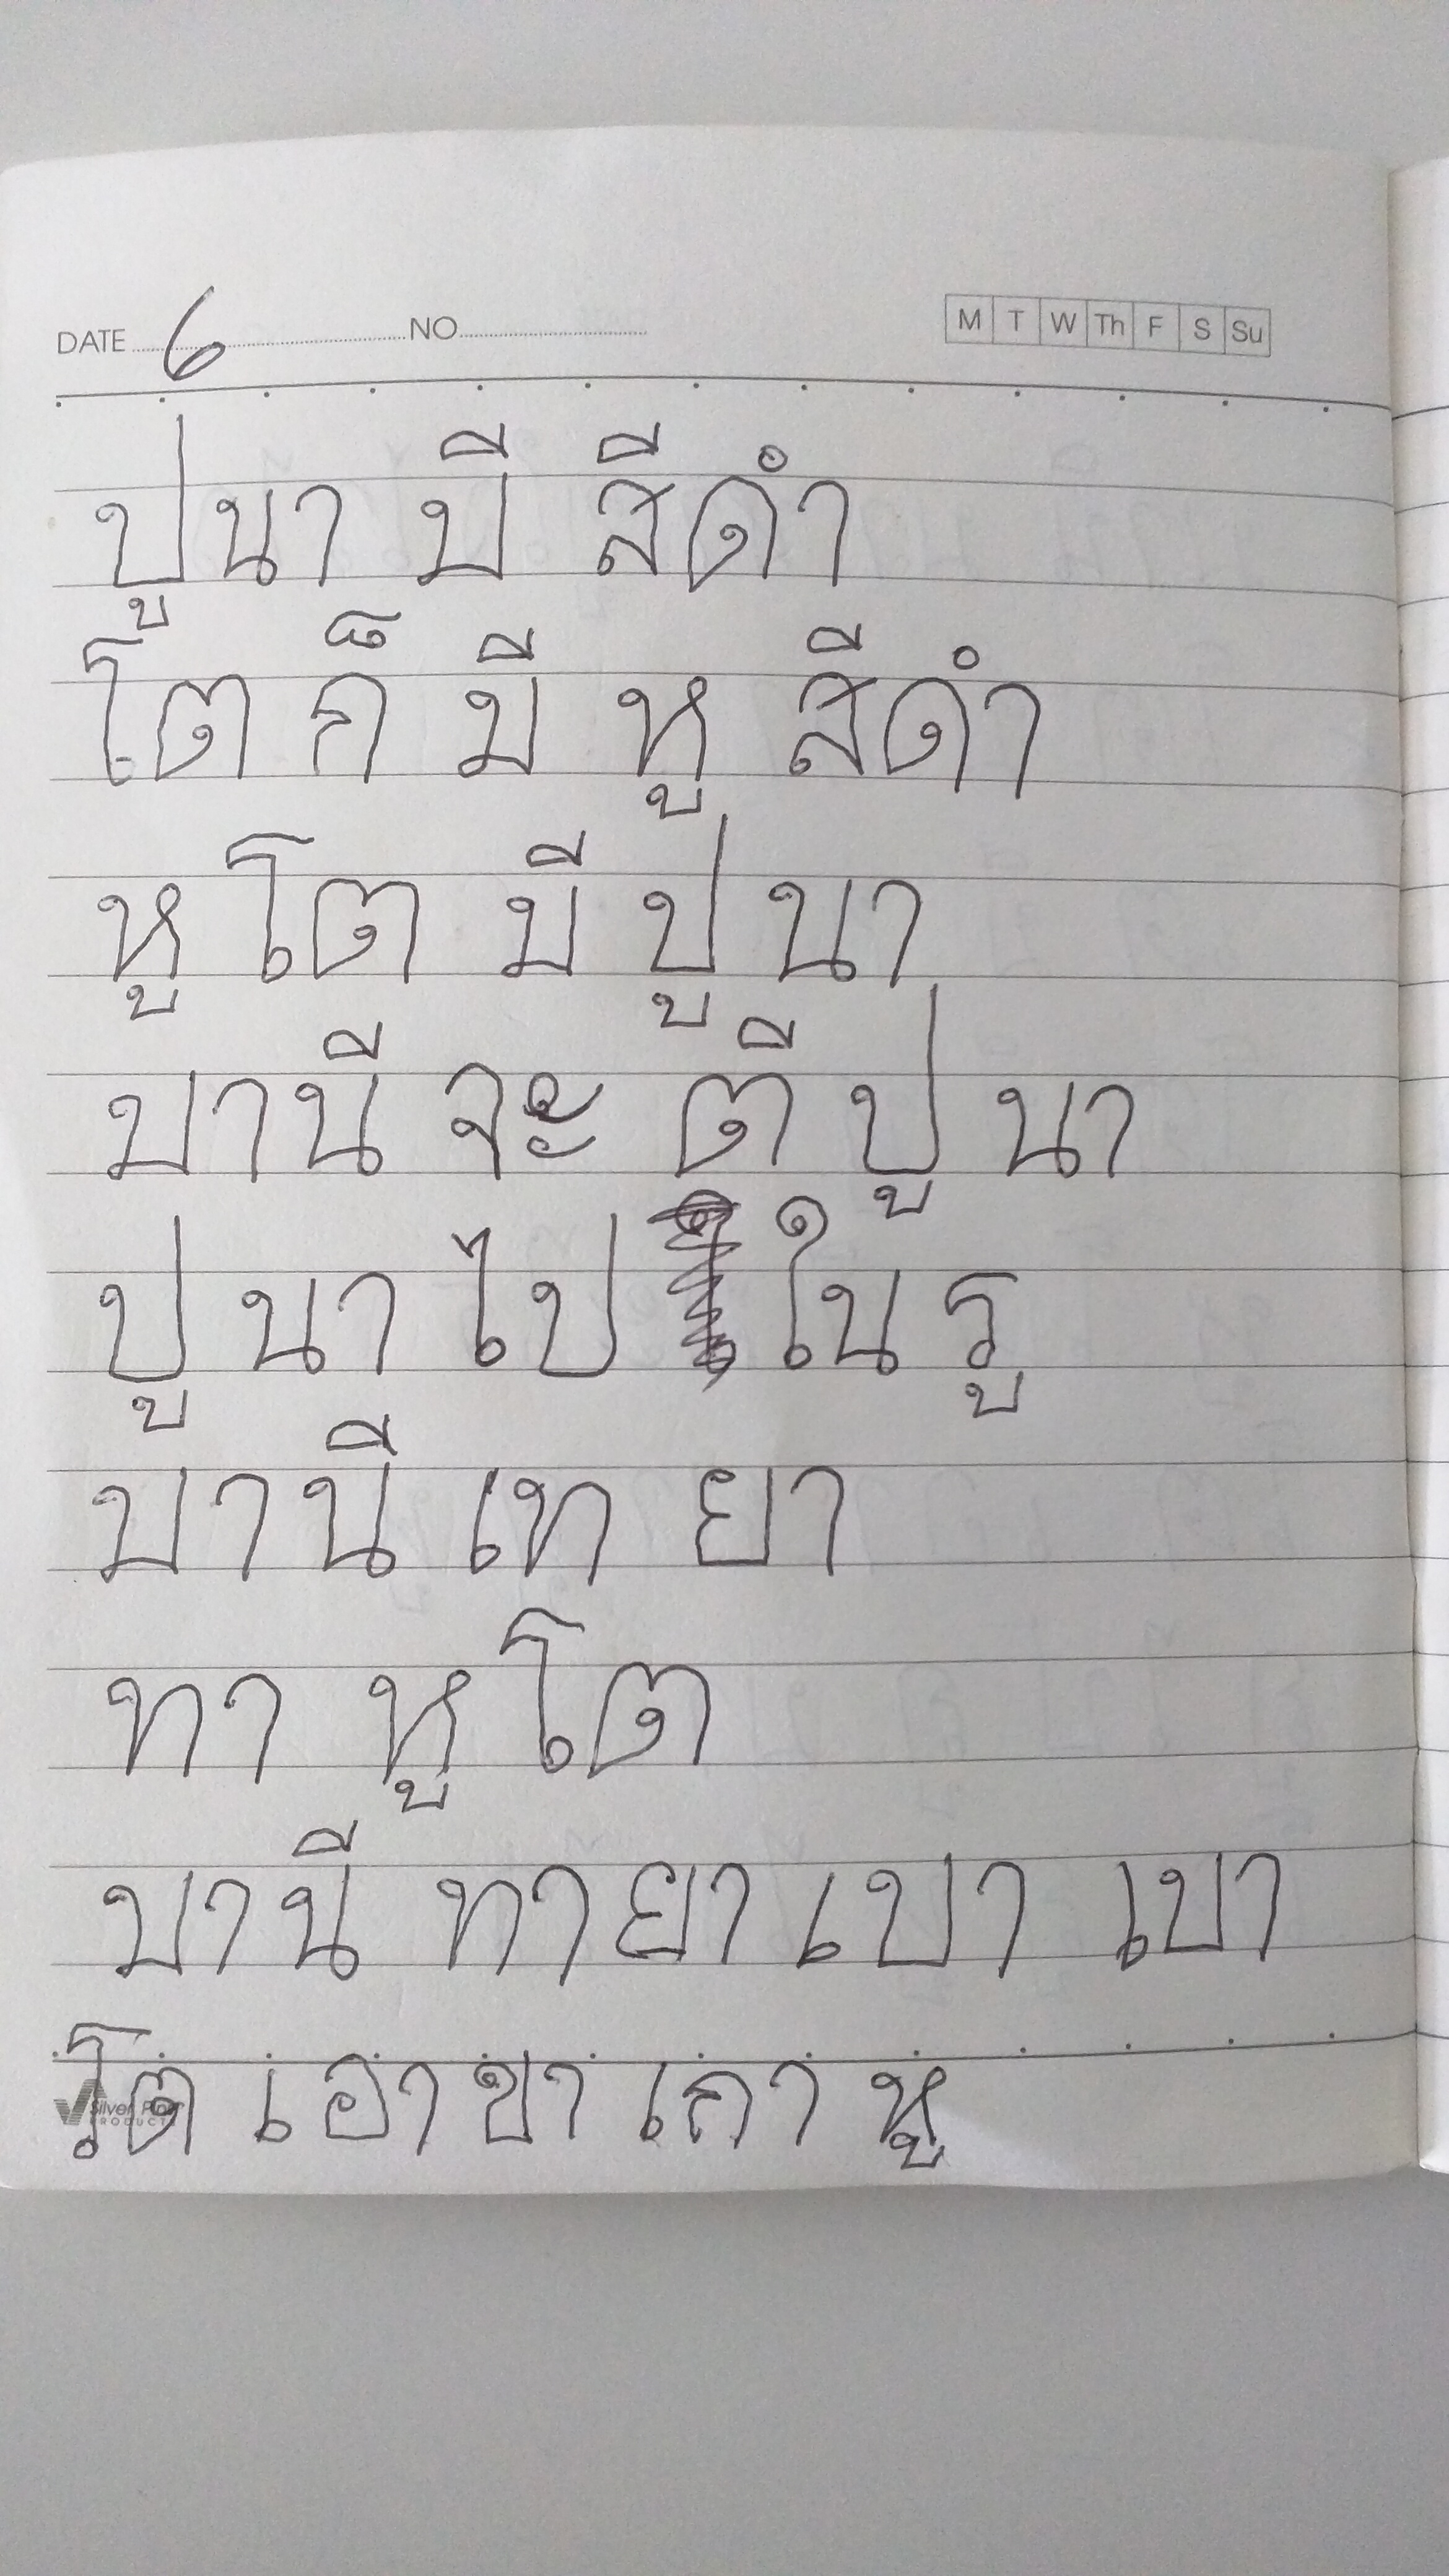 DATE 6 NO M T W Th F S Su
ปู นา มี สีดำ
โต ก็ มี หู สีดำ
หู โต มี ปู นา
มานี จะ ตี ปู นา
ปู นา ไป ใน รู
มานี เท ยา
ทา หู โต
มานี ทายา เบา เบา
โต เอา ขา เกา หู
Silver Pine PRODUCT